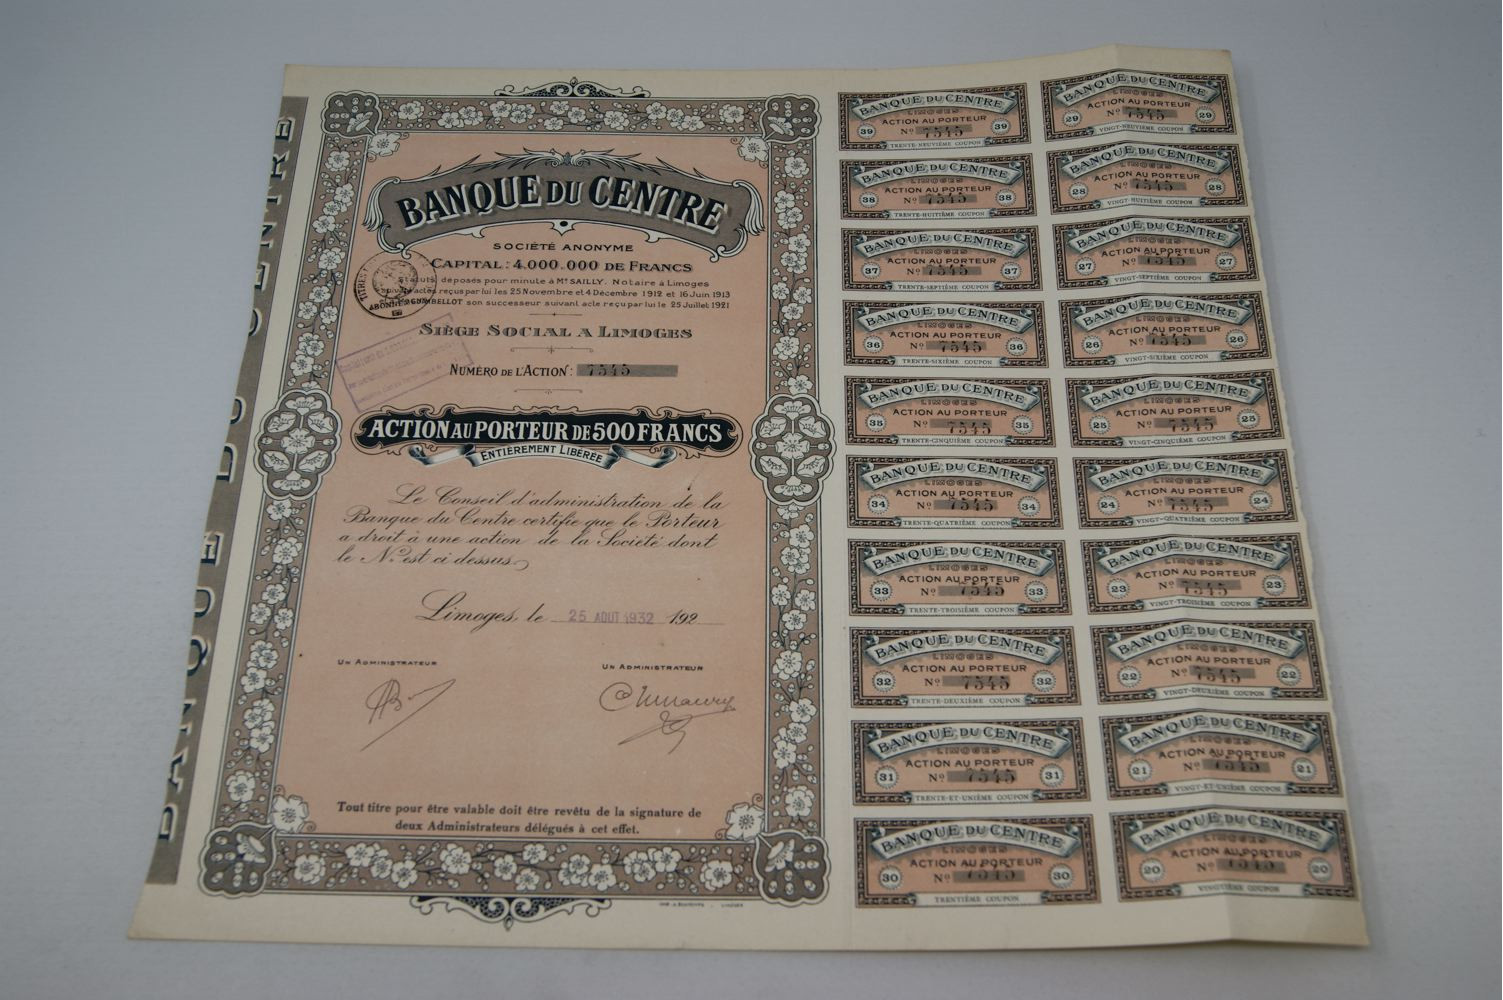 BANQUE DU CENTRE
BANQUE DU CENTRE
SOCIÉTÉ ANONYME
CAPITAL: 4.000.000 DE FRANCS
Statuts déposés pour minute à Me SAILLY. Notaire à Limoges
reçus par lui les 25 Novembre et 4 Décembre 1912 et 16 Juin 1913
son successeur suivant acte reçu par lui le 25 Juillet 1921
SIÈGE SOCIAL A LIMOGES
NUMÉRO DE L'ACTION: 7545
ACTION AU PORTEUR DE 500 FRANCS
ENTIÈREMENT LIBÉRÉE
Le Conseil d'administration de la
Banque du Centre certifie que le Porteur
a droit à une action de la Société dont
le No est ci dessus.
Limoges, le 25 AOUT 1932 192
UN ADMINISTRATEUR UN ADMINISTRATEUR
Tout titre pour être valable doit être revêtu de la signature de
deux Administrateurs délégués à cet effet.
BANQUE DU CENTRE
LIMOGES
ACTION AU PORTEUR
39 No 7545 39
TRENTE-NEUVIÈME COUPON
BANQUE DU CENTRE
LIMOGES
ACTION AU PORTEUR
38 No 7545 38
TRENTE-HUITIÈME COUPON
BANQUE DU CENTRE
LIMOGES
ACTION AU PORTEUR
37 No 7545 37
TRENTE-SEPTIÈME COUPON
BANQUE DU CENTRE
LIMOGES
ACTION AU PORTEUR
36 No 7545 36
TRENTE-SIXIÈME COUPON
BANQUE DU CENTRE
LIMOGES
ACTION AU PORTEUR
35 No 7545 35
TRENTE-CINQUIÈME COUPON
BANQUE DU CENTRE
LIMOGES
ACTION AU PORTEUR
34 No 7545 34
TRENTE-QUATRIÈME COUPON
BANQUE DU CENTRE
LIMOGES
ACTION AU PORTEUR
33 No 7545 33
TRENTE-TROISIÈME COUPON
BANQUE DU CENTRE
LIMOGES
ACTION AU PORTEUR
32 No 7545 32
TRENTE-DEUXIÈME COUPON
BANQUE DU CENTRE
LIMOGES
ACTION AU PORTEUR
31 No 7545 31
TRENTE-ET-UNIÈME COUPON
BANQUE DU CENTRE
LIMOGES
ACTION AU PORTEUR
30 No 7545 30
TRENTIÈME COUPON
BANQUE DU CENTRE
LIMOGES
ACTION AU PORTEUR
29 No 7545 29
VINGT-NEUVIÈME COUPON
BANQUE DU CENTRE
LIMOGES
ACTION AU PORTEUR
28 No 7545 28
VINGT-HUITIÈME COUPON
BANQUE DU CENTRE
LIMOGES
ACTION AU PORTEUR
27 No 7545 27
VINGT-SEPTIÈME COUPON
BANQUE DU CENTRE
LIMOGES
ACTION AU PORTEUR
26 No 7545 26
VINGT-SIXIÈME COUPON
BANQUE DU CENTRE
LIMOGES
ACTION AU PORTEUR
25 No 7545 25
VINGT-CINQUIÈME COUPON
BANQUE DU CENTRE
LIMOGES
ACTION AU PORTEUR
24 No 7545 24
VINGT-QUATRIÈME COUPON
BANQUE DU CENTRE
LIMOGES
ACTION AU PORTEUR
23 No 7545 23
VINGT-TROISIÈME COUPON
BANQUE DU CENTRE
LIMOGES
ACTION AU PORTEUR
22 No 7545 22
VINGT-DEUXIÈME COUPON
BANQUE DU CENTRE
LIMOGES
ACTION AU PORTEUR
21 No 7545 21
VINGT-ET-UNIÈME COUPON
BANQUE DU CENTRE
LIMOGES
ACTION AU PORTEUR
20 No 7545 20
VINGTIÈME COUPON